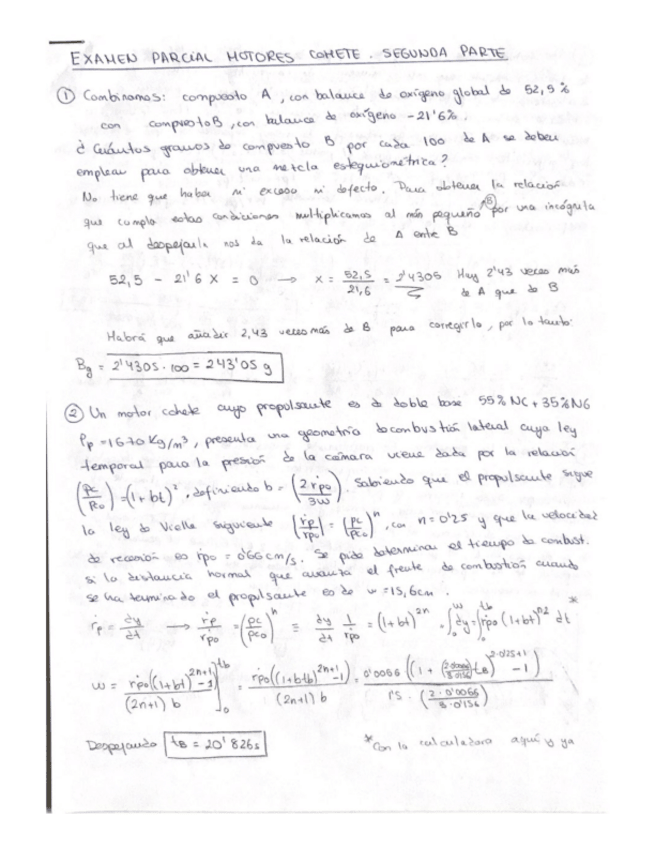 EXAMEN PARCIAL MOTORES COHETE. SEGUNDA PARTE
① Combinamos: compuesto A, con balance de oxígeno global de 52,5%
con compuesto B, con balance de oxígeno -21'6%.
¿Cuántos gramos de compuesto B por cada 100 de A se deben
emplear para obtener una mezcla estequiométrica?
No tiene que haber ni exceso ni defecto. Para obtener la relación
que cumpla estas condiciones multiplicamos al más pequeño (B) por una incógnita
que al despejarla nos da la relación de A ente B
52,5 - 21'6 X = 0 → X = 52,5/21,6 = 2'4305 Hay 2'43 veces más
de A que de B
Habrá que añadir 2,43 veces más de B para corregirlo, por lo tanto:
Bg = 2'4305 · 100 = 243'05 g
② Un motor cohete cuyo propulsante es de doble base 55% NC + 35% NG
ρp = 1670 Kg/m³, presenta una geometría de combustión lateral cuya ley
temporal para la presión de la cámara viene dada por la relación
(pc/pco) = (1+bt)², definiendo b = (2 ṙpo/3w). Sabiendo que el propulsante sigue
la ley de Vieille siguiente (ṙp/ṙpo) = (pc/pco)ⁿ, con n = 0'25 y que la velocidad
de recesión es ṙpo = 0'66 cm/s. Se pide determinar el tiempo de combust.
si la distancia normal que avanza el frente de combustión cuando
se ha terminado el propulsante es de w = 15,6cm.
ṙp = dy/dt → ṙp/rpo = (pc/pco)ⁿ = dy/dt 1/rpo = (1+bt)²ⁿ = ∫₀ʷ dy = ∫₀ᵗᵇ ṙpo (1+bt)ⁿ² dt *
w = ṙpo((1+bt)²ⁿ⁺¹ - 1)/(2n+1) b ]₀ᵗᵇ = ṙpo((1+btb)²ⁿ⁺¹ - 1)/(2n+1) b = 0'0066 ((1 + (2·0'0066/3·0'156) tB)^(2·0'25+1) - 1)/1'5 · (2·0'0066/3·0'156)
Despejando tB = 20'826s *Con la calculadora aquí y ya